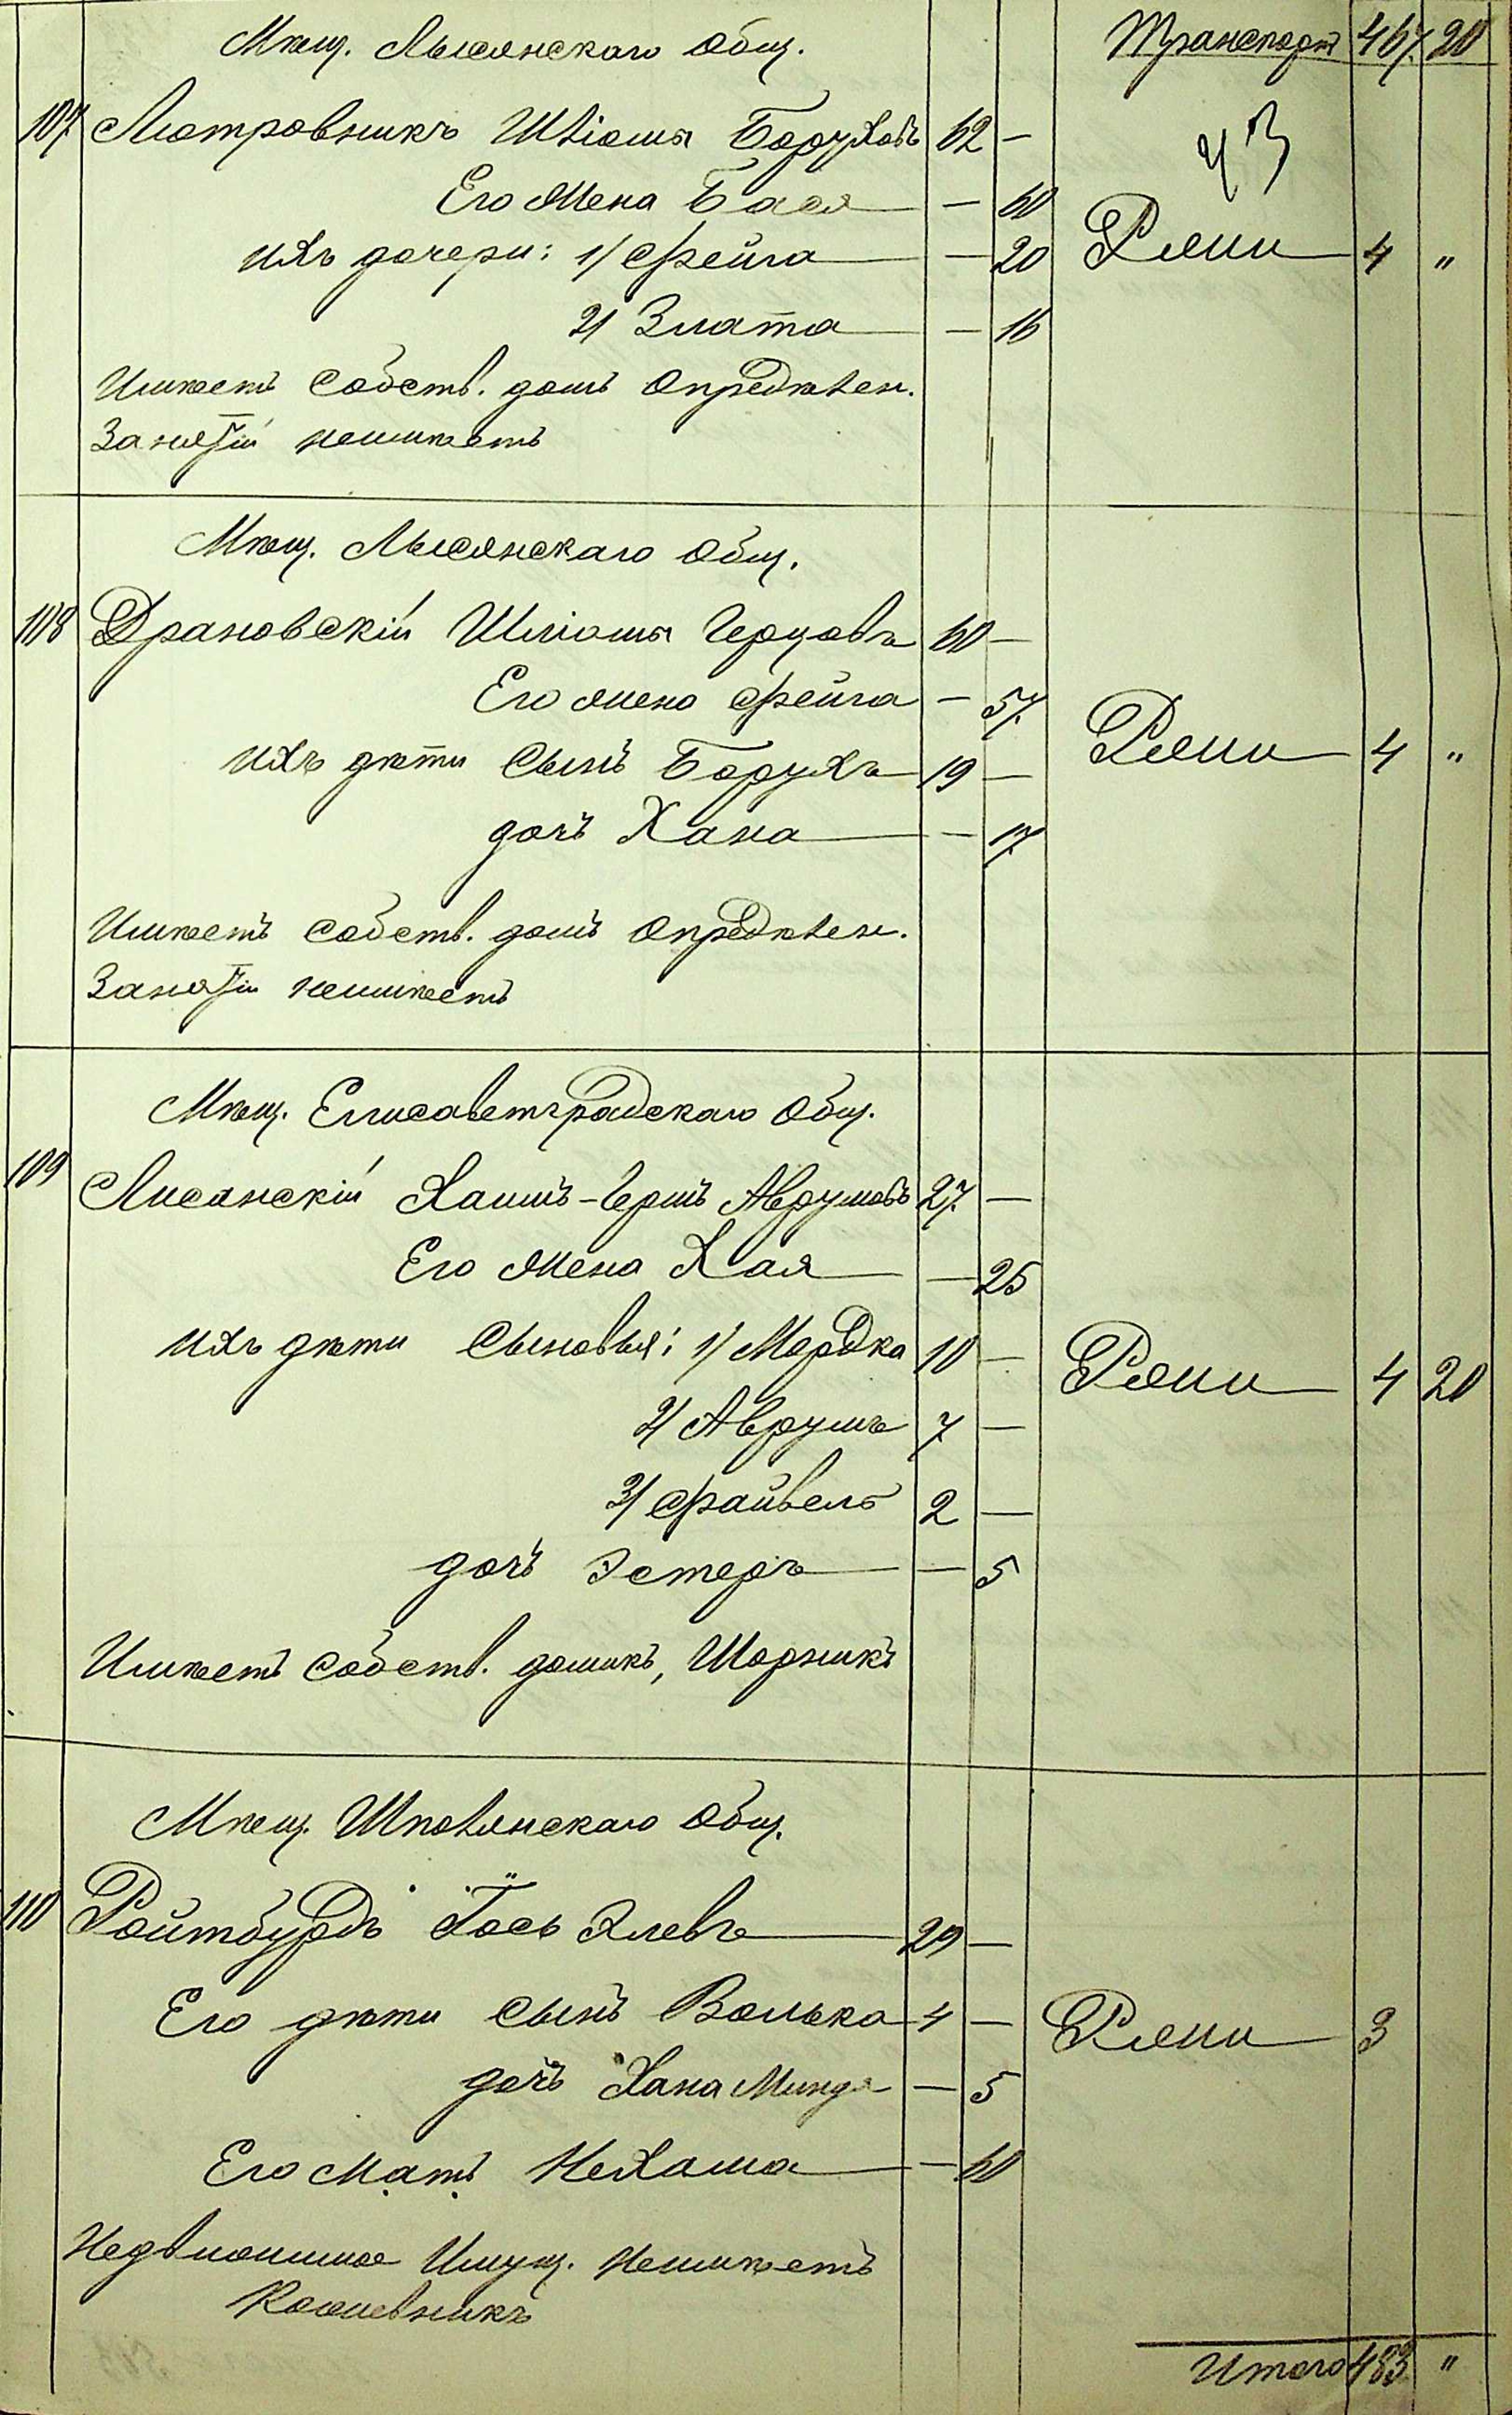 Мѣщ. Лысянскаго Общ. Транспортъ 467. 20
107. Лютровникъ Шліома Боруховъ 62 —
43
Его Жена Бася — 60
ихъ дочери: 1/ Фейга — 20 4 "
2/ Злата — 16
Имѣетъ собств. домъ Опредѣлен.
Занятій неимѣетъ
Мѣщ. Лысянскаго Общ.
108 Драновскій Шліома Герцовъ 60 —
Его жена Фейга — 57.
ихъ дѣти Сынъ Борухъ 19 — 4 "
дочь Хана — 17
Имѣетъ собств. домъ Опредѣлен.
Занятій неимѣетъ
Мѣщ. Елисаветградскаго Общ.
109 Лисянскій Хаимъ-Гершъ Аврумовъ 27. —
Его жена Хая — 25
ихъ дѣти Сыновья: 1/ Мордка 10 — 4 20
2/ Аврумъ 7 —
3/ Файвель 2 —
дочь Эстеръ — 5
Имѣетъ собств. домикъ, Шорникъ
Мѣщ. Шполянскаго Общ.
110 Ройтбурдъ Іось Элевъ 29 —
Его дѣти сынъ Волько 4 — 3
дочь Хана Миндя — 5
Его Мать Нехама — 60
Недвижимое Имущ. Неимѣетъ
Кожевникъ
Итого 483 "